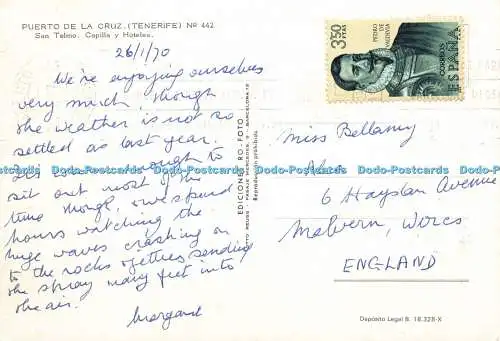 PUERTO DE LA CRUZ. (TENERIFE) Nº 442
San Telmo. Capilla y Hoteles.
26/1/70
We're enjoying ourselves
very much, though
the weather is not so
settled as last year.
enough to
sit out most of the
time though, we spend
hours watching the
huge waves crashing on
to the rocks & jetties sending
the spray many feet into
the air.
Margaret
EDICIONES RO-FOTO
PASAJE MERCEDES, BARCELONA
Reproducción prohibida
3'50
PTAS
PEDRO
DE
VALDIVIA
CORREOS
ESPAÑA
Miss Bellamy
6 Hayslan Avenue
Malvern, Worcs
ENGLAND
Depósito Legal B. 18.328-X
Dodo-Postcards Dodo-Postcards Dodo-Postcards Dodo-Postcards Dodo-Postcards